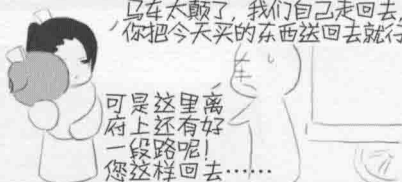 马车太颠了，我们自己走回去，
你把今天买的东西送回去就行
可是这里离
府上还有好
一段路呢！
您这样回去……